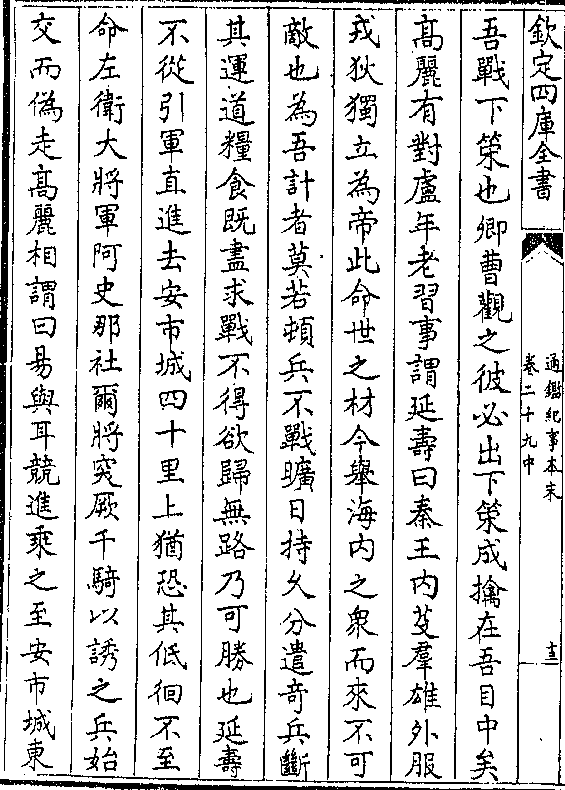 欽定四庫全書
通鑑紀事本末
卷二十九中
十三
吾戰下策也卿曹觀之彼必出下策成擒在吾目中矣
高麗有對盧年老習事謂延壽曰秦王内芟羣雄外服
戎狄獨立為帝此命世之材今舉海内之衆而來不可
敵也為吾計者莫若頓兵不戰曠日持久分遣奇兵斷
其運道糧食既盡求戰不得欲歸無路乃可勝也延壽
不從引軍直進去安市城四十里上猶恐其低徊不至
命左衛大將軍阿史那社爾將突厥千騎以誘之兵始
交而偽走高麗相謂曰易與耳競進乘之至安市城東